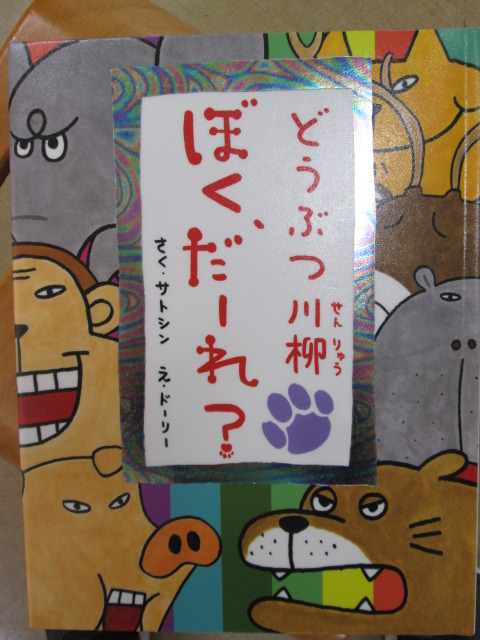 どうぶつ川柳
せんりゅう
ぼく、だーれ?
さく・サトシン え・ドーリー